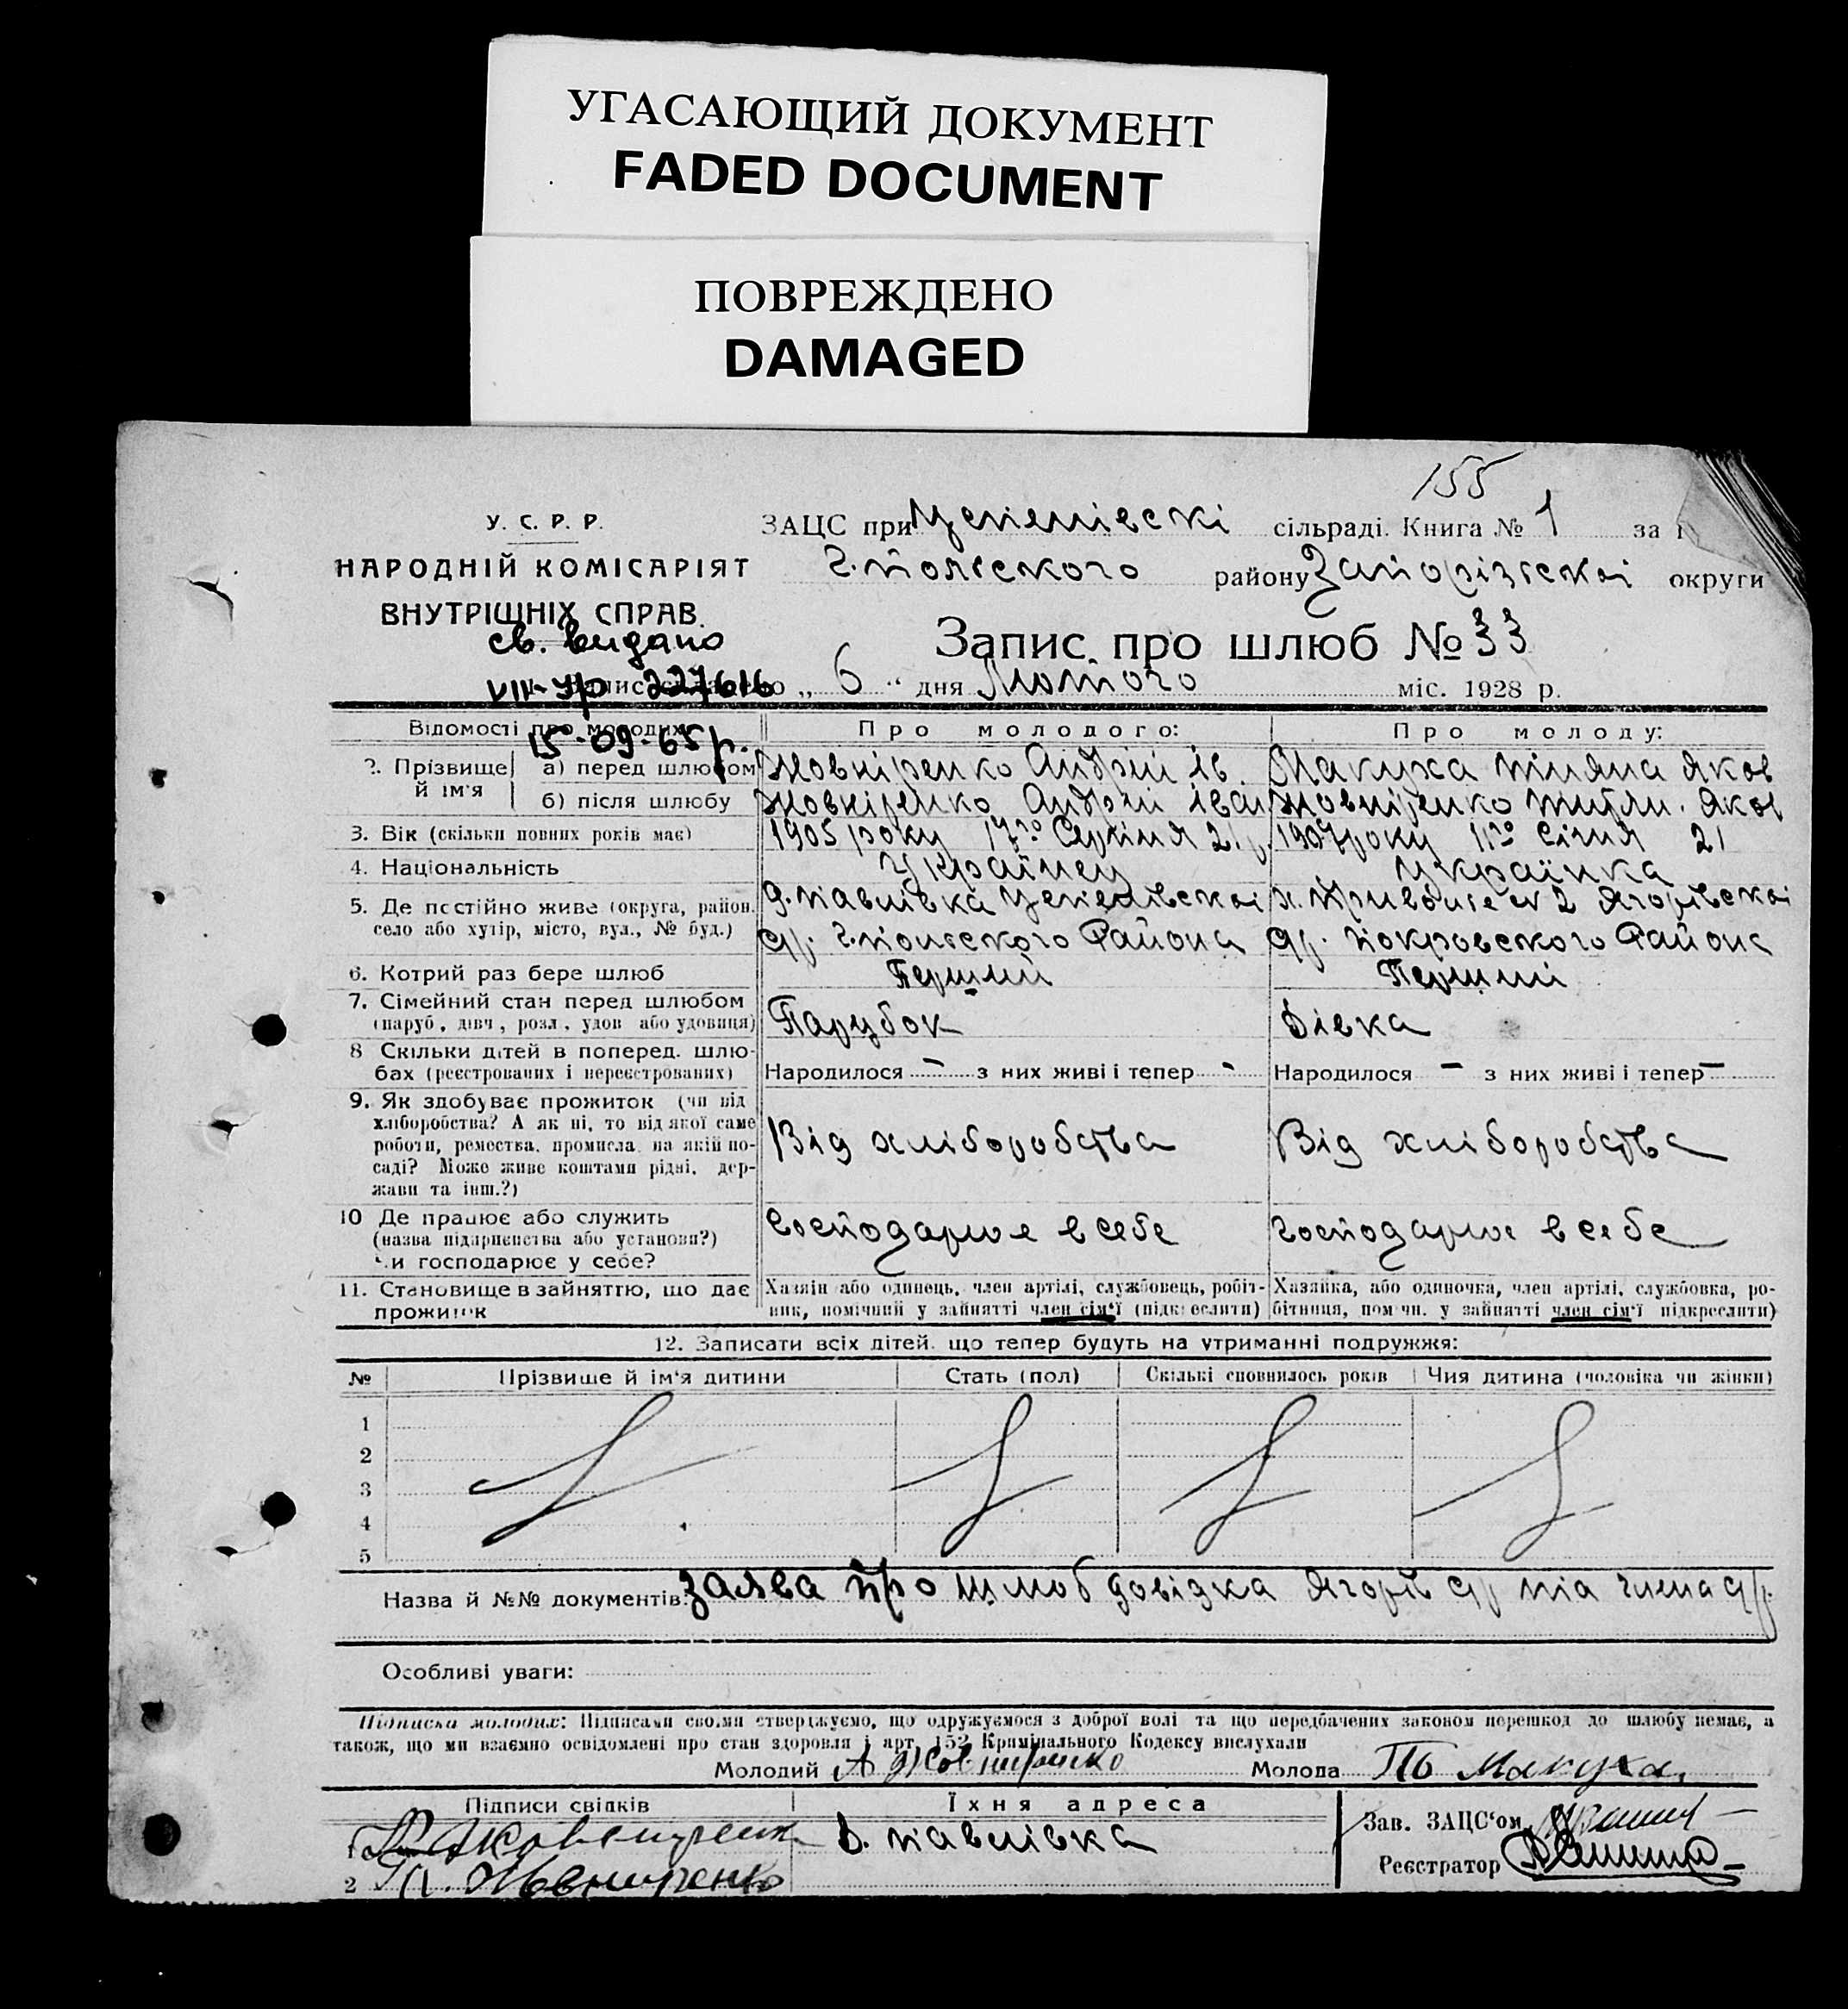 УГАСАЮЩИЙ ДОКУМЕНТ
FADED DOCUMENT
ПОВРЕЖДЕНО
DAMAGED
155
У. С. Р. Р.
НАРОДНІЙ КОМІСАРІЯТ
ВНУТРІШНІХ СПРАВ.
ЗАЦС при сільраді. Книга № 1 за
Г.польского району Запорізської округи
Запис про шлюб № 33
св. видано
VII-ур 227616
15.09.65р.
„ 6 “ дня Лютого міс. 1928 р.
Відомості про молодих
Про молодого:
Про молоду:
2. Прізвище й ім'я
а) перед шлюбом
Жовніренко Андрій Ів.
Макуха Тітяна Яков
б) після шлюбу
Жовніренко Андрій Іван
Жовніренко Яков
3. Вік (скільки повних років має)
1905 року 17го Серпня
1907 року 11го Січня 21
4. Національність
Українец
Українка
5. Де постійно живе (округа, район.
село або хутір, місто, вул., № буд.)
д. Павлівка
с/р. Г.польского Района
х. Привольє № 2 Ягорівскаї
с/р. Покровского Района
6. Котрий раз бере шлюб
Перший
Перший
7. Сімейний стан перед шлюбом
(паруб, дівч, розл, удов або удовиця)
Парубок
Дівка
8 Скільки дітей в поперед. шлю-
бах (реєстрованих і нереєстрованих)
Народилося – з них живі і тепер -
Народилося – з них живі і тепер –
9. Як здобуває прожиток (чи від
хліборобства? А як ні, то від якої саме
роботи, ремества, промисла, на якій по-
саді? Може живе коштами рідні, дер-
жави та інш.?)
Від хліборобства
Від хліборобства
10 Де працює або служить
(назва підприємства або установи?)
Чи господарює у себе?
Господарює в себе
Господарює в себе
11. Становище в зайняттю, що дає
прожиток
Хазяїн або одинець, член артілі, службовець, робіт-
ник, помічний у зайнятті член сім'ї (підкреслити)
Хазяйка, або одиночка, член артілі, службовка, ро-
бітниця, пом чн. у зайнятті член сім'ї підкреслити)
12. Записати всіх дітей, що тепер будуть на утриманні подружжя:
№ Прізвище й ім'я дитини Стать (пол) Скількі сповнилось років Чия дитина (чоловіка чи жінки)
1
2
3
4
5
Назва й №№ документів: Заява про шлюб довідка Ягорів с/р
Особливі уваги:
Підписка молодих: Підписами своїми стверджуємо, що одружуємося з доброї волі та що передбачених законом перешкод до шлюбу немає, а
також, що ми взаємно освідомлені про стан здоровля і арт. 152 Кримінального Кодексу вислухали
Молодий А Жовниренко Молода Макуха
Підписи свідків Їхня адреса
1 Д. Павлівка
2
Зав. ЗАЦС'ом
Реєстратор